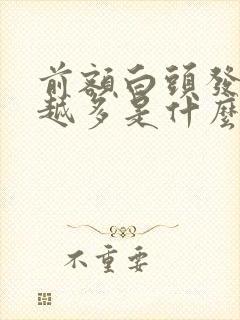 前額白頭發
越多是什麼
不重要